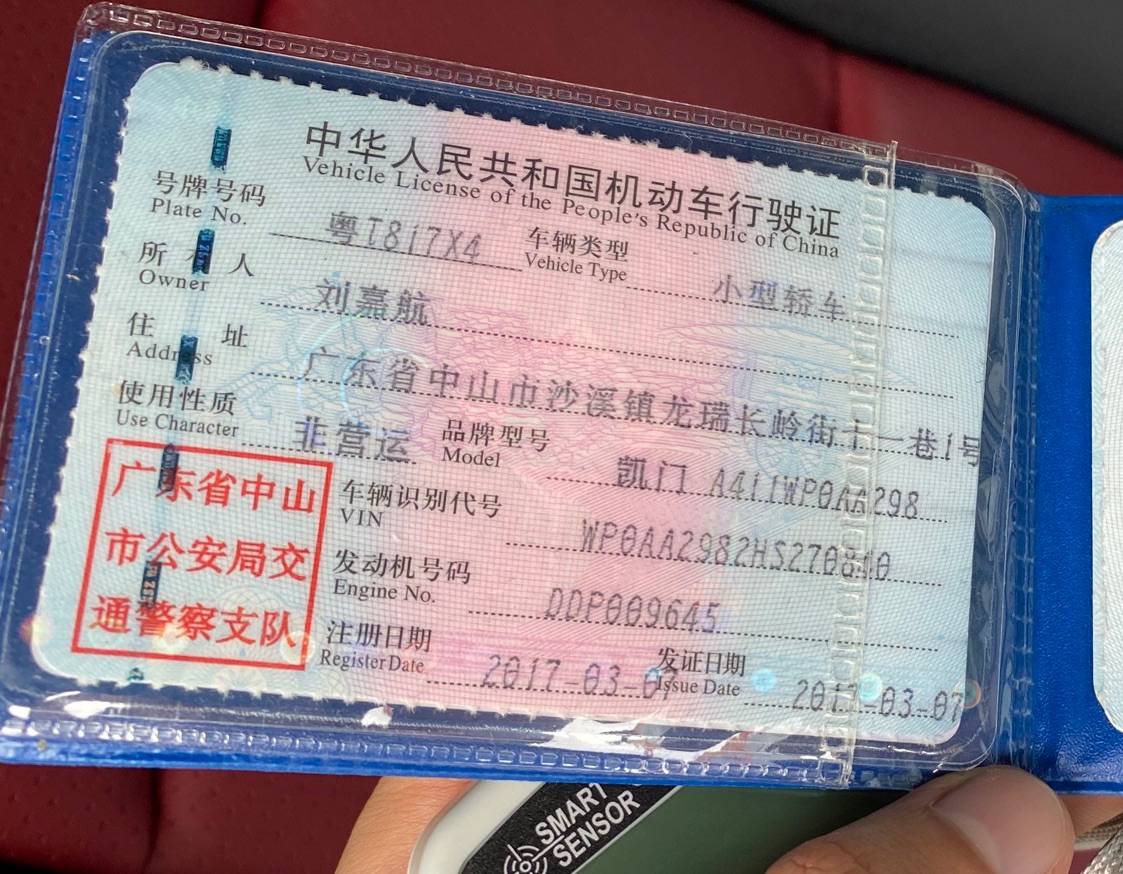 中华人民共和国机动车行驶证
Vehicle License of the People's Republic of China
号牌号码 粤T817X4 车辆类型 小型轿车
Plate No. Vehicle Type
所有人 刘嘉航
Owner
住址 广东省中山市沙溪镇龙瑞长岭街十一巷1号
Address
使用性质 非营运 品牌型号 凯门 A411WP0AA298
Use Character Model
广东省中山
市公安局交
通警察支队
车辆识别代号 WP0AA2982HS270840
VIN
发动机号码 DDP009645
Engine No.
注册日期 2017-03-07 发证日期 2017-03-07
Register Date Issue Date
SMART
SENSOR